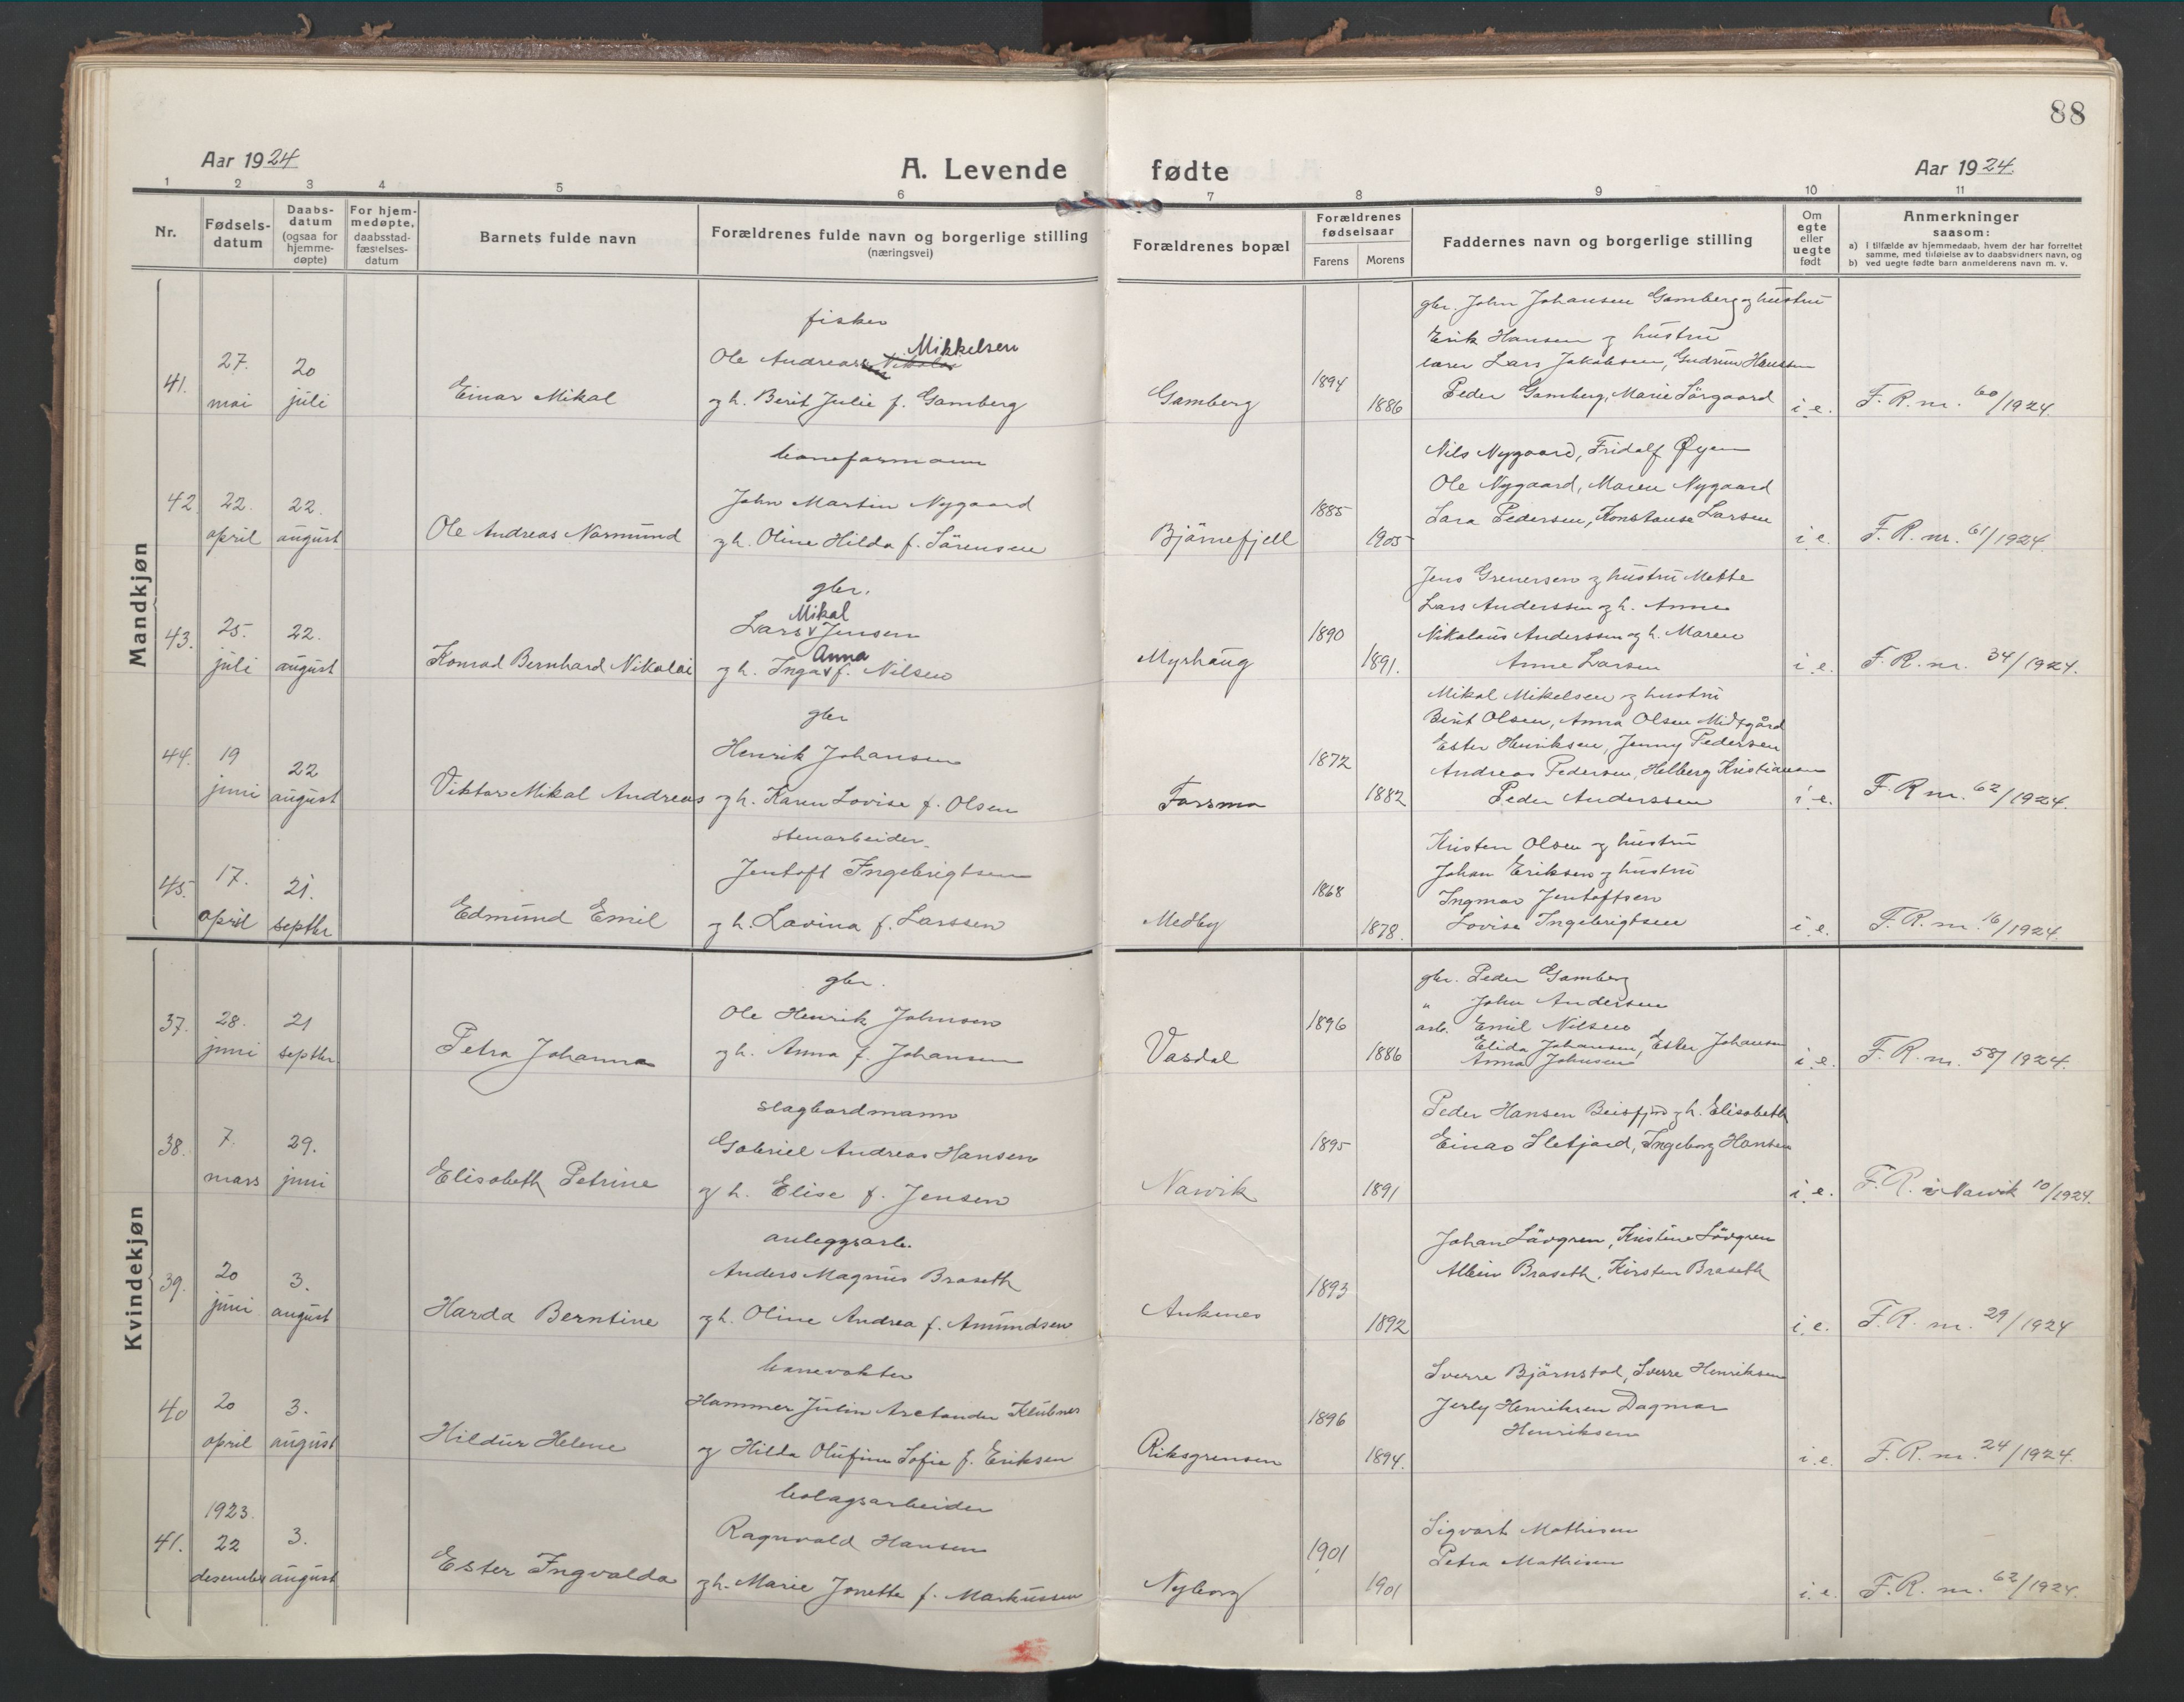 88
Aar 1924
A. Levende fødte
Aar 1924.
1 2 3 4 5 6 7 8 9 10 11
Nr.
Fødsels-
datum
Daabs-
datum
(ogsaa for
hjemme-
døpte)
For hjem-
medøpte,
daabsstad-
fæstelses-
datum
Barnets fulde navn
Forældrenes fulde navn og borgerlige stilling
(næringsvei)
Forældrenes bopæl
Forældrenes
fødselsaar
Farens Morens
Faddernes navn og borgerlige stilling
Om
egte
eller
uegte
født
Anmerkninger
saasom:
a) i tilfælde av hjemmedaab, hvem der har forrettet
samme, med tilføielse av to daabsvidners navn, og
b) ved uegte fødte barn anmelderens navn m. v.
Mandkjøn
41.
27.
mai
20
juli
Einar Mikal
fisker
Mikkelsen
Ole Andreas
og h. Berit Julie f. Gamberg
Gamberg
1894
1886
gbr. John Johansen Gamberg og hustru
Erik Hansen og hustru
lærer Lars Jakobsen, Gudrun Hansen
Peder Gamberg, Marie Sörgaard
i. e.
F. R. nr. 60/1924.
42.
22.
april
22.
august
Ole Andreas Normund
baneformann
John Martin Nygaard
og h. Oline Hilda f. Sörensen
Björnefjell
1885
1905
Nils Nygaard, Fridolf Øyen
Ole Nygaard, Maren Nygaard
Lara Pedersen, Konstanse Larsen
i. e.
F. R. nr. 61/1924.
43.
25.
juli
22.
august
Konrad Bernhard Nikolai
gbr.
Mikal
Lars v Jensen
Anna
og h. Inga v f. Nilsen
Myrhaug
1890
1891.
Jens Grenersen og hustru Mette
Lars Anderssen og h. Anne
Nikolaus Anderssen og h. Maren
Anne Larsen
i. e.
F. R. nr. 34/1924.
44.
19
juni
22
august
Viktor Mikal Andreas
gbr
Henrik Johansen
og h. Karen Lovise f. Olsen
Forsmo
1872
1882
Mikal Mikelsen og hustru
Berit Olsen, Anna Olsen Midtgård
Ester Henriksen, Jenny Pedersen
Andreas Pedersen, Helberg Kristiansen
Peder Anderssen
i. e.
F. R. nr. 62/1924.
45.
17.
april
21.
septbr
Edmund Emil
stenarbeider
Jentoft Ingebrigtsen
og h. Lavina f. Larssen
Medby
1868
1878.
Kristen Olsen og hustru
Johan Eriksen og hustru
Ingmar Jentoftsen
Lovise Ingebrigtsen
i. e.
F. R. nr. 16/1924.
Kvindekjøn
37.
28.
juni
21
septbr
Petra Johanna
gbr.
Ole Henrik Johnsen
og h. Anna f. Johansen
Vasdal
1896
1886
gbr. Peder Gamberg
" John Andersen
arb. Emil Nilsen
Elida Johansen, Ester Johansen
Anna Johnsen
i. e.
F. R. nr. 58/1924.
38.
7.
mars
29.
juni
Elisabeth Petrine
slagbordmann
Gabriel Andreas Hansen
og h. Elise f. Jensen
Narvik
1895
1891
Peder Hansen Beisfjord og h. Elisabeth
Einar Sletjord, Ingeborg Hansen
i. e.
F. R. i Narvik 10/1924.
39.
20
juni
3.
august
Harda Berntine
anleggsarb.
Anders Magnus Braseth
og h. Oline Andrea f. Amundsen
Ankenes
1893
1892
Johan Lövgren, Kristine Lövgren
Albin Braseth, Kirsten Braseth
i. e.
F. R. nr. 29/1924
40
20
april
3.
august
Hildur Helene
banevokter
Hammer Julin Klubnes
og Hilda Olufine Sofie f. Eriksen
Riksgrensen
1896
1894.
Sverre Björnstad, Sverre Henriksen
Henriksen Dagmar
Henriksen
i. e.
F. R. nr. 24/1924.
41.
1923.
22
desember
3.
august
Ester Ingvalda
bolagsarbeider
Ragnvald Hansen
og h. Marie Jonette f. Markussen
Nyborg
1901
1901
Sigvart Mathisen
Petra Mathisen
i. e.
F. R. nr. 62/1924.